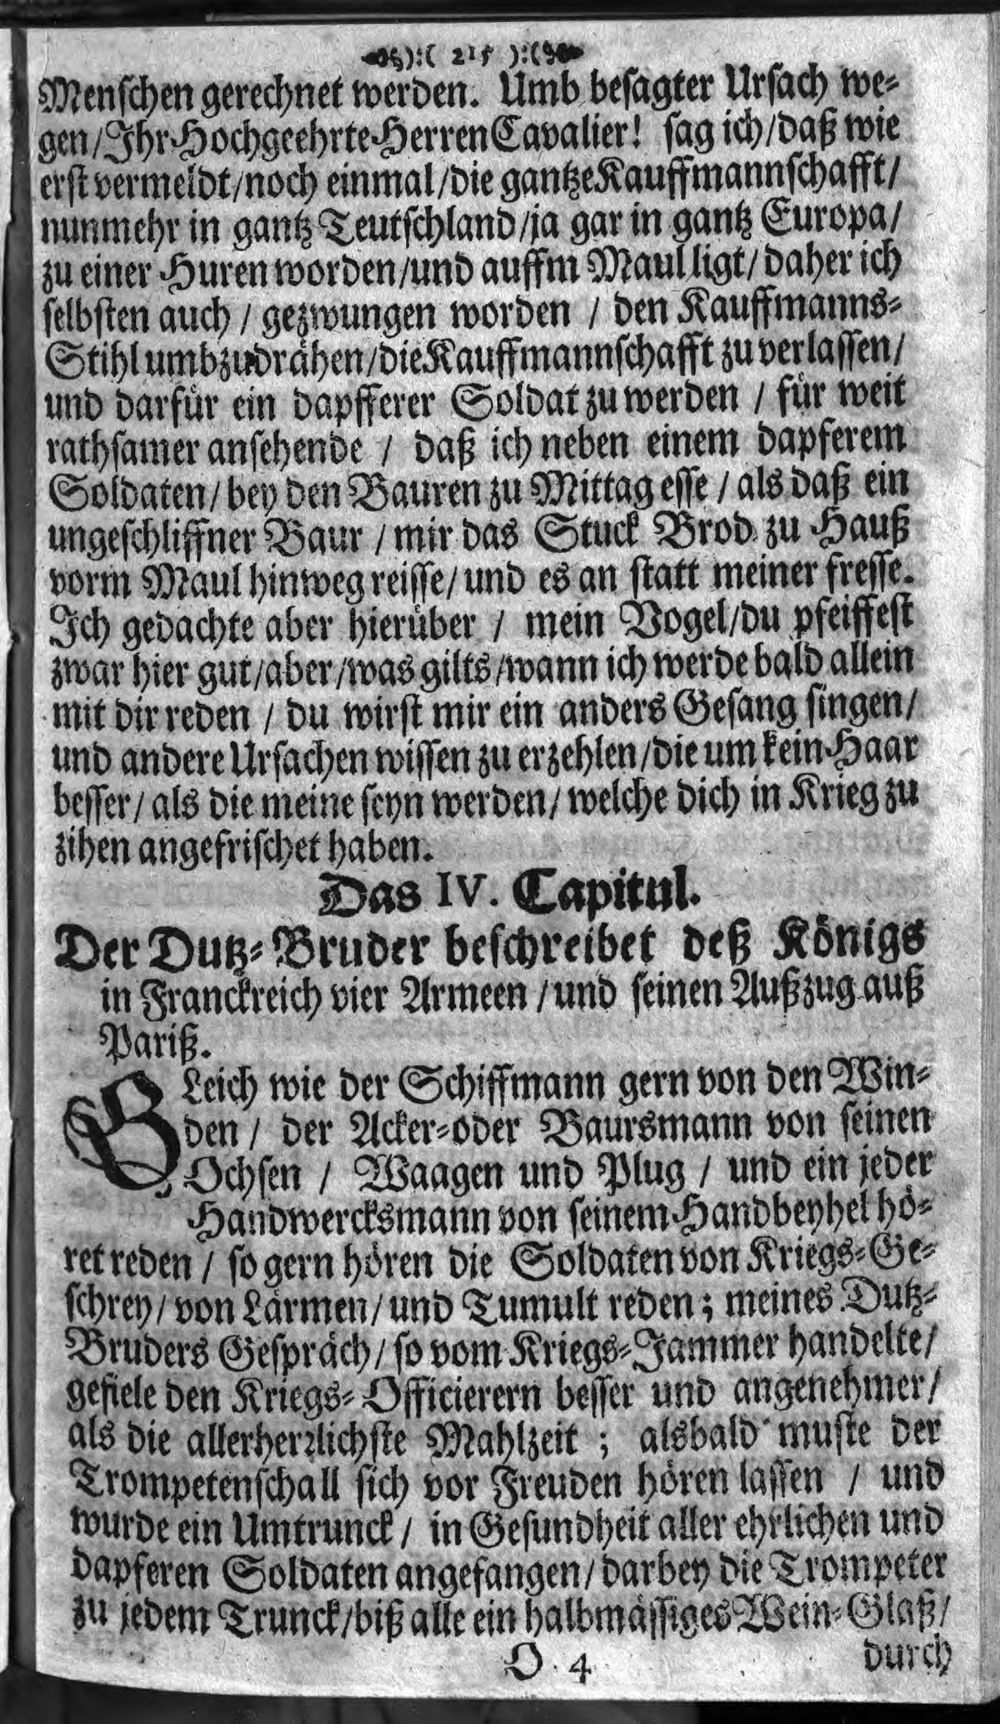 ):( 215 ):(
Menschen gerechnet werden. Umb besagter Ursach we-
gen/Ihr Hochgeehrte Herren Cavalier! sag ich/daß wie
erst vermeldt/noch einmal/die gantze Kauffmannschafft/
nunmehr in gantz Teutschland/ja gar in gantz Europa/
zu einer Huren worden/und auffm Maul ligt/daher ich
selbsten auch / gezwungen worden / den Kauffmanns-
Stihl umbzudrähen/die Kauffmannschafft zu verlassen/
und darfür ein dapfferer Soldat zu werden / für weit
rathsamer ansehende / daß ich neben einem dapferem
Soldaten/bey den Bauren zu Mittag esse / als daß ein
ungeschliffner Baur / mir das Stuck Brod zu Hauß
vorm Maul hinweg reisse/und es an statt meiner fresse.
Ich gedachte aber hierüber / mein Vogel/du pfeiffest
zwar hier gut/aber/was gilts/wann ich werde bald allein
mit dir reden / du wirst mir ein anders Gesang singen/
und andere Ursachen wissen zu erzehlen/die um kein Haar
besser/ als die meine seyn werden/ welche dich in Krieg zu
zihen angefrischet haben.
Das IV. Capitul.
Der Dutz-Bruder beschreibet deß Königs
in Franckreich vier Armeen /und seinen Außzug auß
Pariß.
GLeich wie der Schiffmann gern von den Win-
den / der Acker-oder Baursmann von seinen
Ochsen / Waagen und Plug / und ein jeder
Handwercksmann von seinem Handbeyhel hö-
ret reden / so gern hören die Soldaten von Kriegs-Ge-
schrey/ von Lärmen/und Tumult reden; meines Dutz-
Bruders Gespräch/ so vom Kriegs-Jammer handelte/
gefiele den Kriegs-Officierern besser und angenehmer/
als die allerherzlichste Mahlzeit ; alsbald muste der
Trompetenschall sich vor Freuden hören lassen / und
wurde ein Umtrunck / in Gesundheit aller ehrlichen und
dapferen Soldaten angefangen/darbey die Trompeter
zu jedem Trunck/biß alle ein halbmässiges Wein-Glaß/
O 4
durch